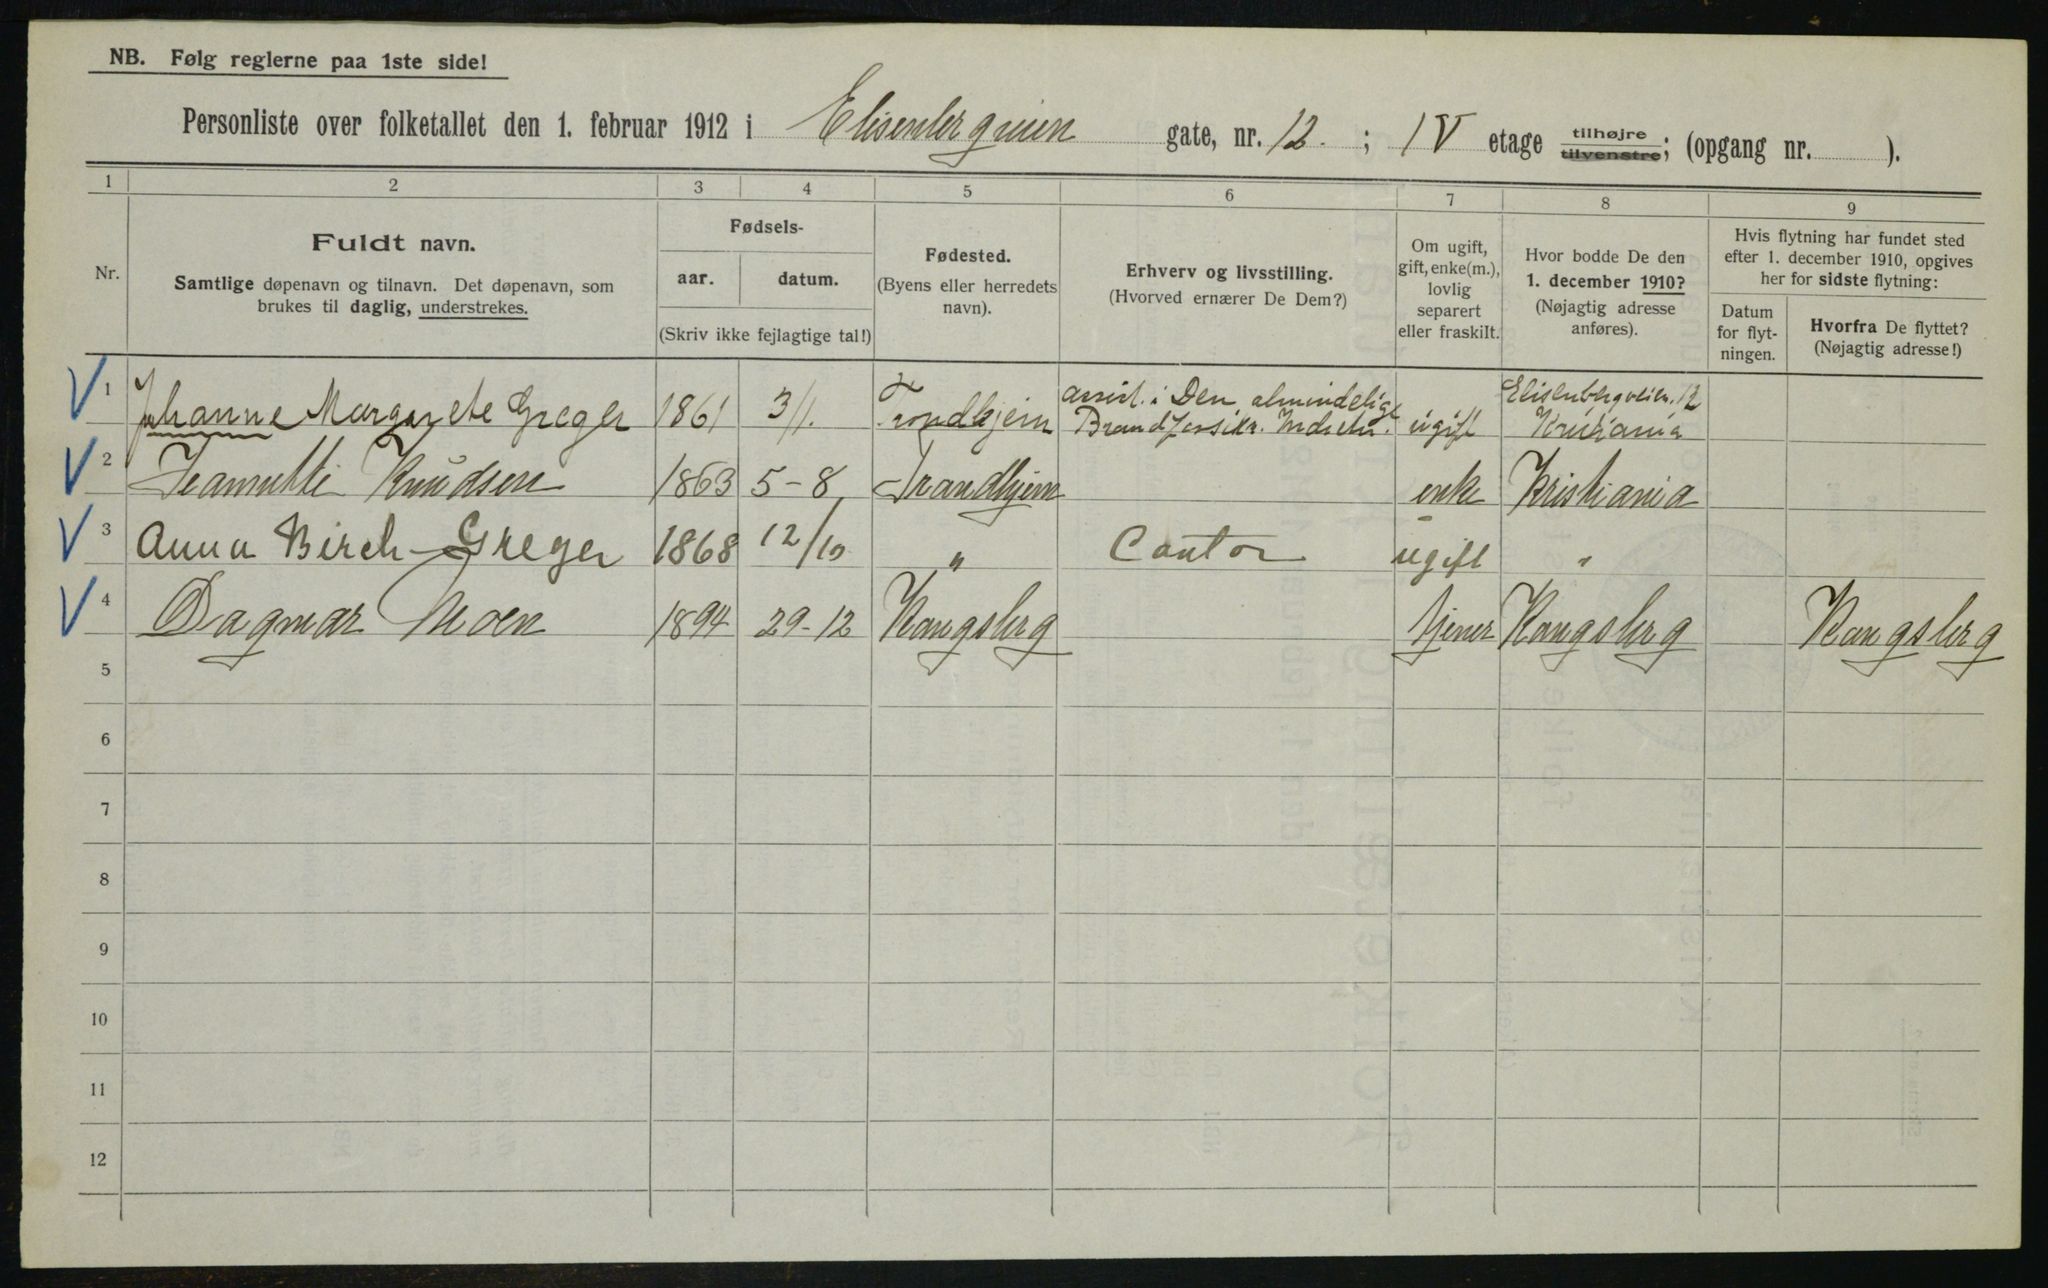 NB. Følg reglerne paa 1ste side!
Personliste over folketallet den 1. februar 1912 i Elisenbergveien gate, nr. 12. ; IV etage tilhøjre tilvenstre; (opgang nr. ).
1 2 3 4 5 6 7 8 9
Nr.
Fuldt navn.
Samtlige døpenavn og tilnavn. Det døpenavn, som
brukes til daglig, understrekes.
Fødsels-
aar. datum.
(Skriv ikke fejlagtige tal!)
Fødested.
(Byens eller herredets
navn).
Erhverv og livsstilling.
(Hvorved ernærer De Dem?)
Om ugift,
gift, enke(m.),
lovlig
separert
eller fraskilt.
Hvor bodde De den
1. december 1910?
(Nøjagtig adresse
anføres).
Hvis flytning har fundet sted
efter 1. december 1910, opgives
her for sidste flytning:
Datum
for flyt-
ningen.
Hvorfra De flyttet?
(Nøjagtig adresse!)
1 Johanne Margarete Greger 1861 3/1. Trondhjem assist. i Den almindelige Brandforsikr. Indretn. ugift Elisenbergveien. 12 Kristiania
2 Jeannette Knudsen 1863 5-8 Trondhjem enke Kristiania
3 Anna Birch-Greger 1868 12/10 " Contor ugift "
4 Dagmar Moen 1894 29-12 Kongsberg tjener Kongsberg Kongsberg
5
6
7
8
9
10
11
12